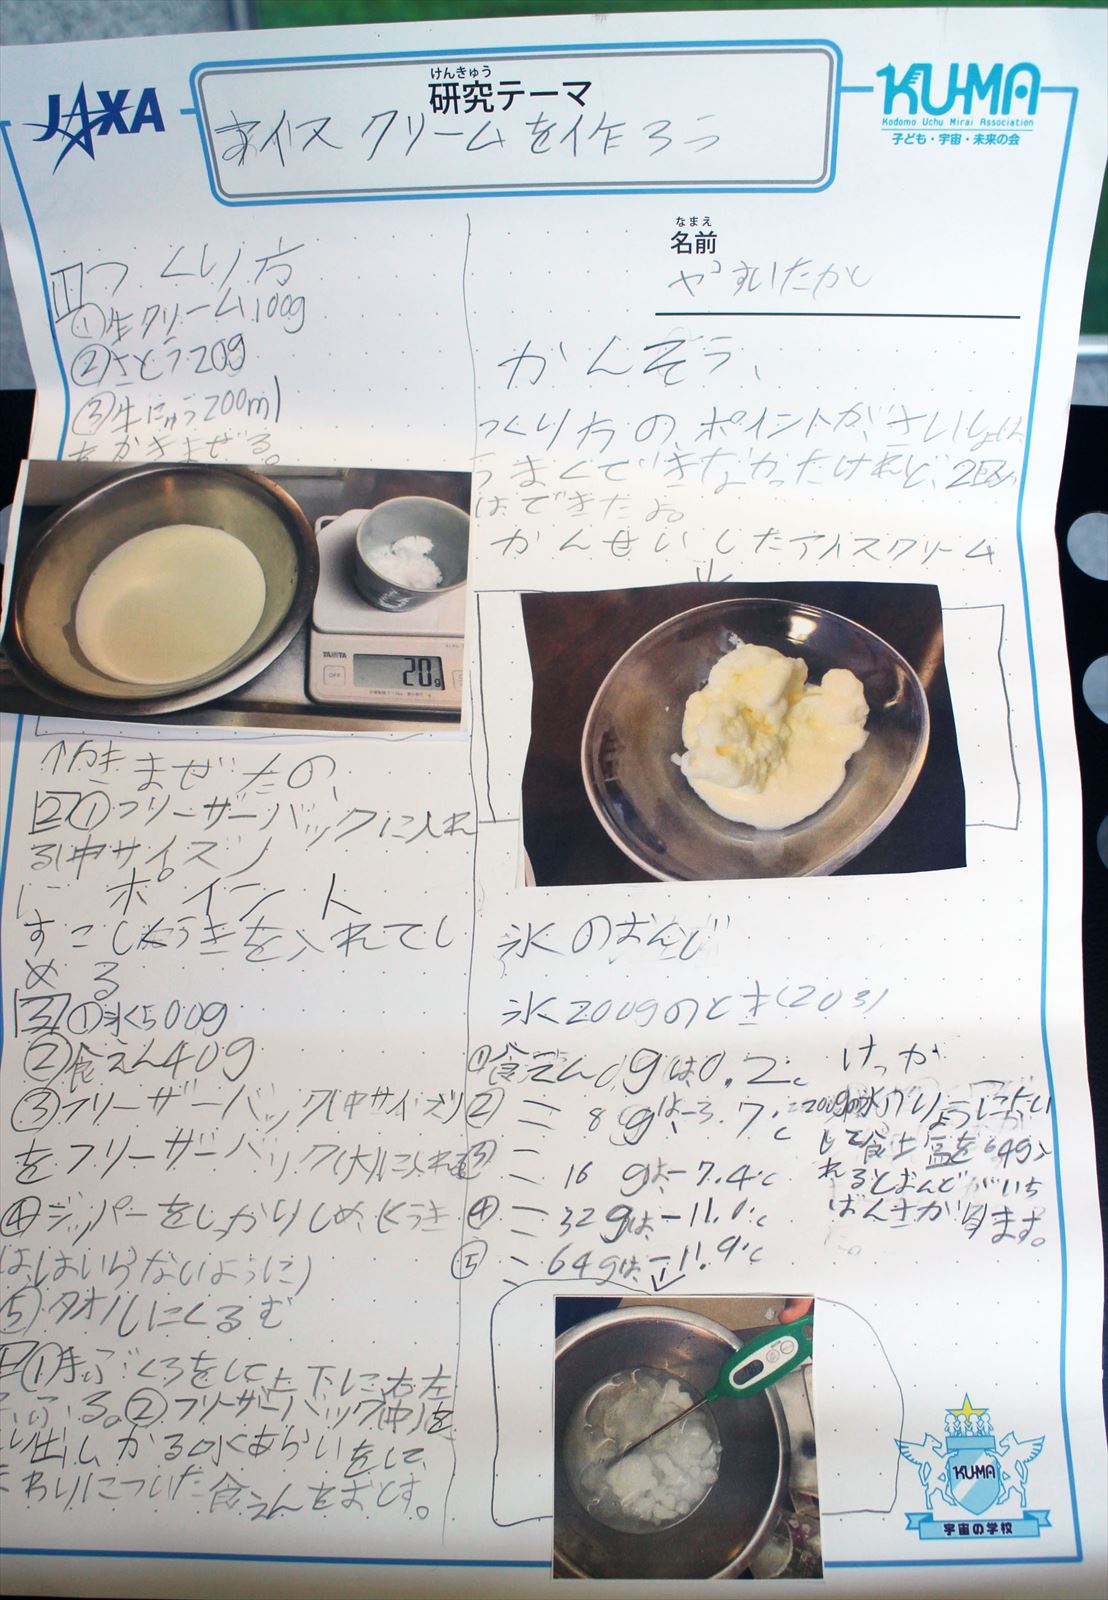 JAXA
けんきゅう
研究テーマ
アイスクリームを作ろう
KU-MA
Kodomo Uchu Mirai Association
子ども・宇宙・未来の会
なまえ
名前
やすいたかし
1 つくり方
①生クリーム100g
②さとう20g
③牛にゅう200ml
をかきまぜる。
TANITA
OFF
20g
↑かきまぜたの、
2①フリーザーバックに入れ
る(中サイズ)
ポイント
すこしくうきを入れてし
める
3①氷500g
②食えん40g
③フリーザーバック(中サイズ)
をフリーザーバック(大)に入れる
④ジッパーをしっかりしめ(くうき
ははいらないように)
⑤タオルにくるむ
①手ぶくろをして上下に右左
にふる。②フリーザーバック(中)を
とり出しかるく水あらいをして、
まわりについた食えんをおとす。
かんそう、
つくり方の、ポイントが、さいしょは
うまくできなかったけれど、2回め
はできたよ。
かんせいしたアイスクリーム
氷のおんど
氷200gのとき
①食えん0gは0.2℃
②〃8gは-3.7℃
③〃16gは-7.4℃
④〃32gは-11.0℃
⑤〃64gは-11.9℃
けっか
200gの氷が
して食塩を64g入
れるとおんどがいち
ばんさがります。
KU-MA
宇宙の学校